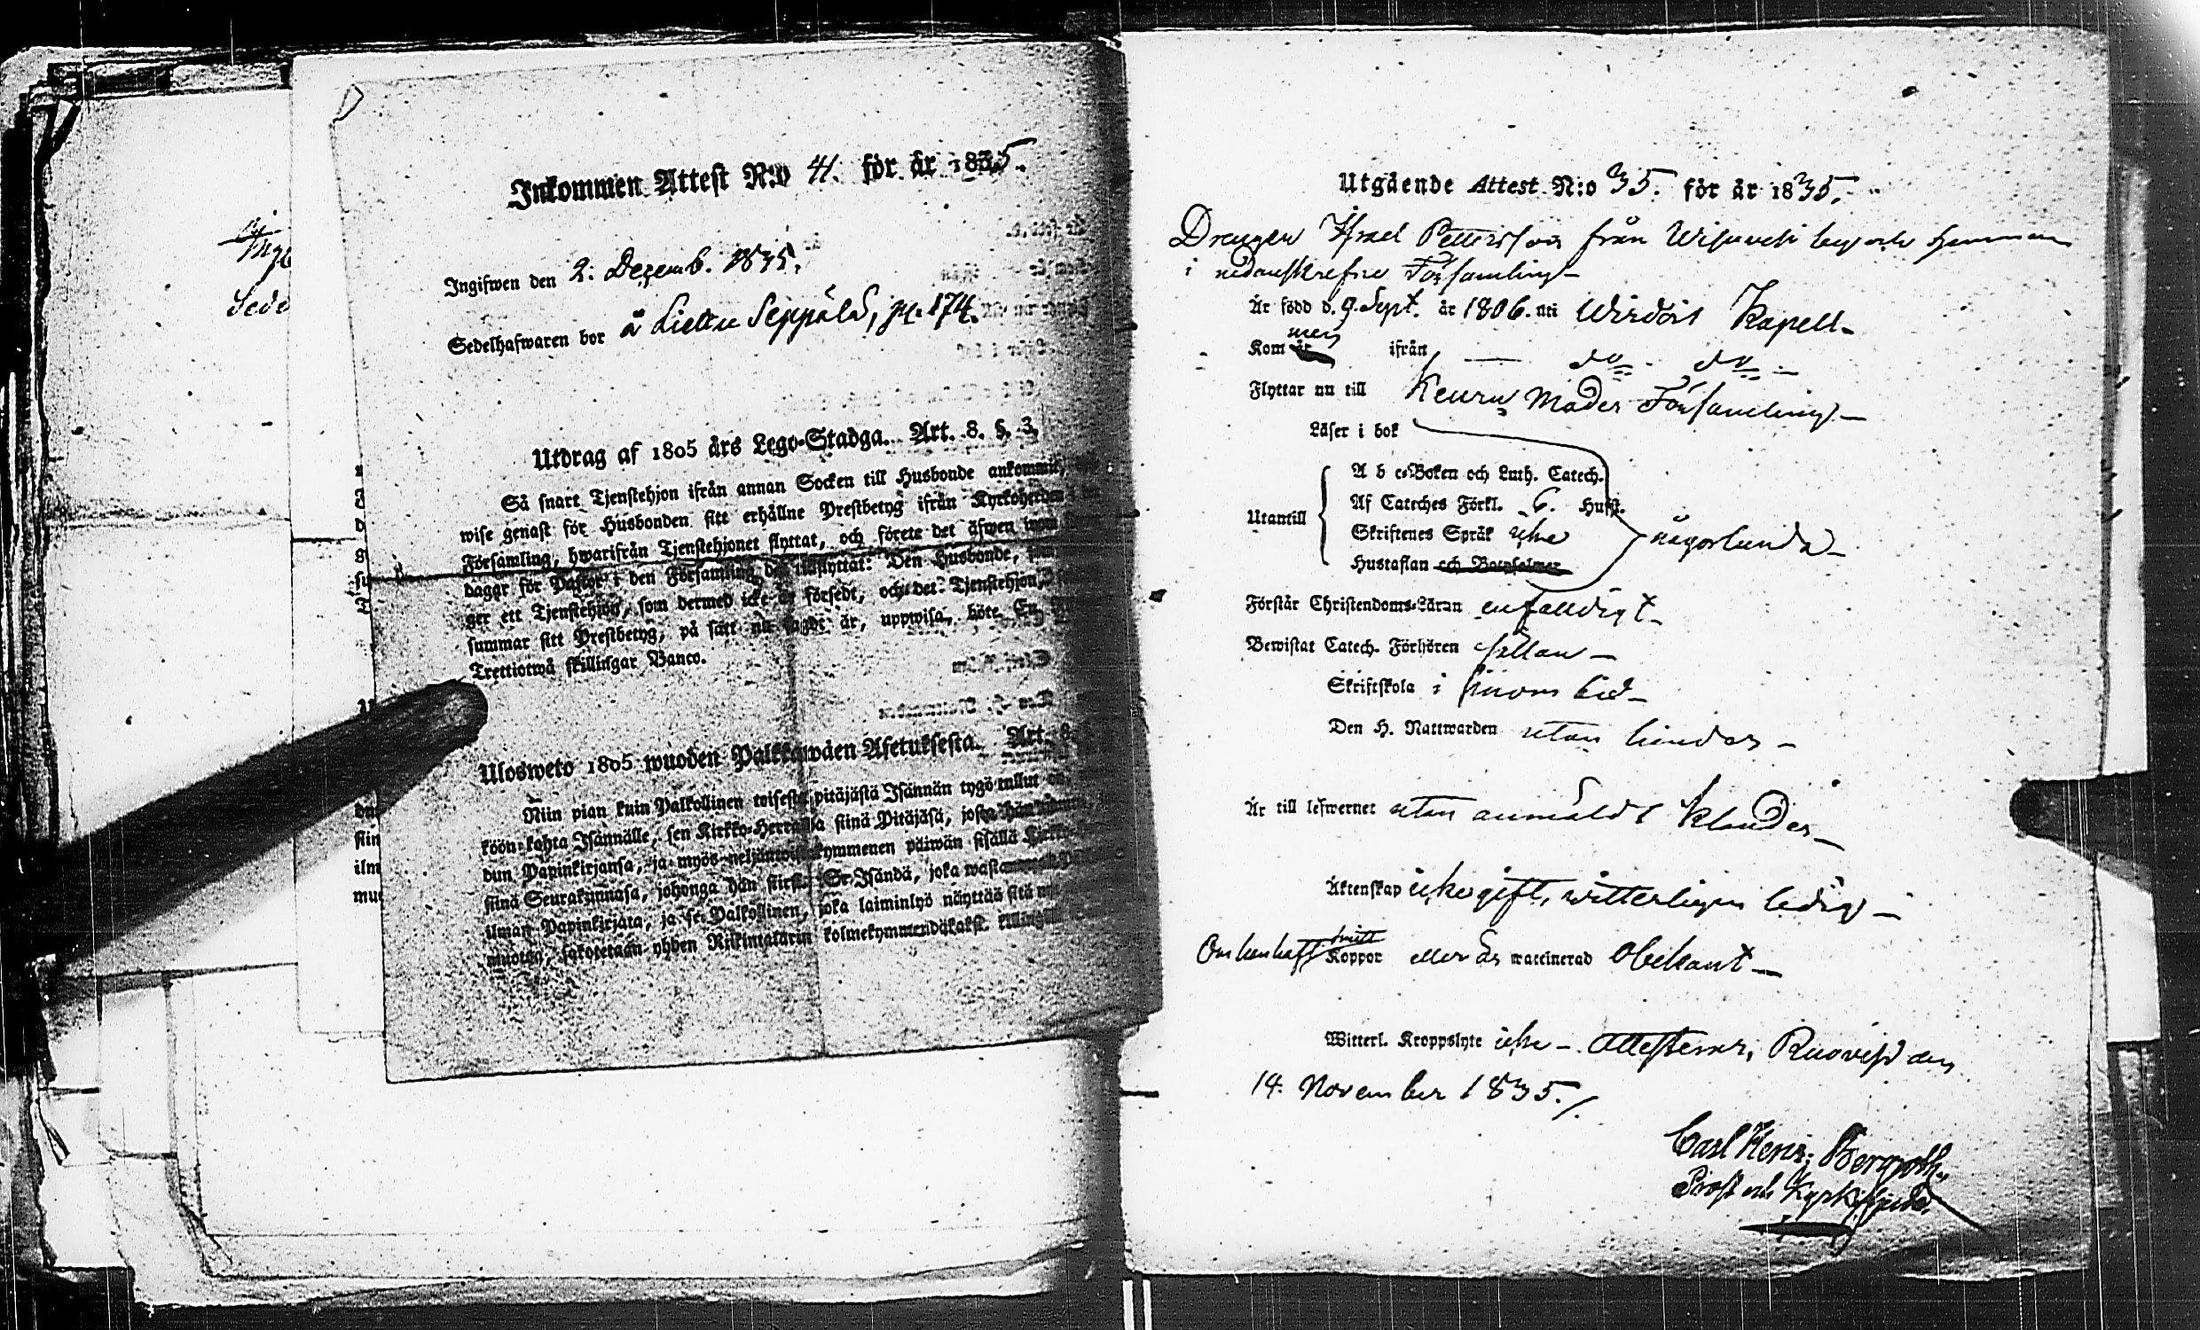 Inkommen Attest N:o 41. för år 1835.
Ingifwen den 2. Dezemb. 1835.
Sedelhafwaren bor å Liettu Seppälä, p. 174.
Utdrag af 1805 års Lego-Stadga. Art. 8. §. 3.
Så snart Tjenstehjon ifrån annan Socken till Husbonde ankommit,
wise genast för Husbonden sitt erhållne Prestbetyg ifrån Kyrkoherden i
Församling, hwarifrån Tjenstehjonet flyttat, och förete det äfwen inom
dagar för Pastor i den Församling, det tillflyttat. Den Husbonde, som
ger ett Tjenstehjon, som dermed icke är försedt, och det Tjenstehjon,
summar sitt Prestbetyg, på sätt nu sagdt är, uppwisa, böte En
Trettiotwå skillingar Banco.
Ulosweto 1805 wuoden Palkkawäen Asetuksesta. Art. 8.
Niin pian kuin Palkollinen toisesta pitäjästä Isännän tygö tullut on,
köön kohta Isännälle, sen Kirkko-Herralda siinä Pitäjäsä, josta hän
dun Papinkirjansa, ja myös neljäntoistakymmenen päiwän sisällä
siinä Seurakunnasa, johonga hän siirsi. Se Isändä, joka wastaanottaa
ilman Papinkirjata, ja se Palkollinen, joka laiminlyö näyttää sitä
muotoa, sakotetaan yhden Riikintalarin kolmekymmendäkaksi killingillä
Utgående Attest N:o 35. för år 1835.
Drengen Israel Pettersson från Wisuvesi by och Hemman
i nedanskrefne Församling
Är född d. 9. Sept. år 1806. uti Wirdois Kapell
Kom ifrån — do — do —
Flyttar nu till Keuru Moder Församling
Läser i bok
A b c-Boken och Luth. Catech.
Utantill Af Cateches Förkl. 6. Hufst.
Skriftenes Språk icke någorlunda
Hustaflan och Botpsalmer
Förstår Christendoms-Läran enfaldigt
Bewistat Catech. Förhören sällan
Skriftskola i sinom tid
Den H. Nattwarden utan hinder
Är till lefwernet utan anmäldt klander
Äktenskap icke gift, witterligen ledig
Om han haft Koppor eller är waccinerad obekant
Witterl. Kroppslyte icke — Attesterar, Ruovesi den
14. November 1835./.
Carl Henr: Bergroth.
Prost och Kyrkoherde.